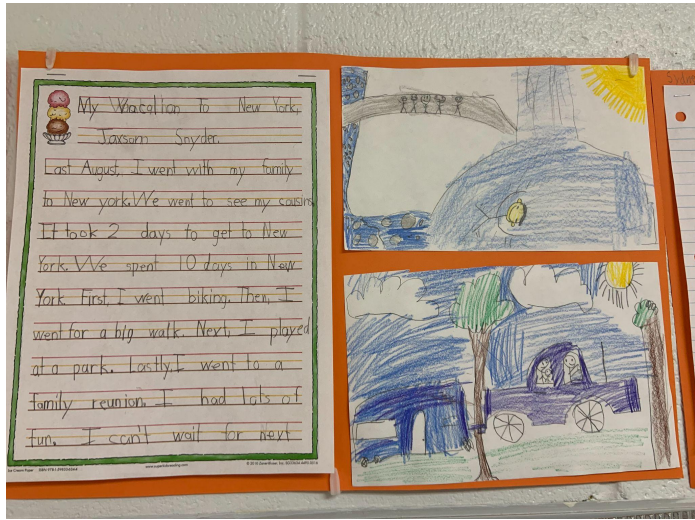 My Vacation To New York,
Jaxsom Snyder.
Last August, I went with my family
to New york. We went to see my cousins
It took 2 days to get to New
York. We spent 10 days in New
York First, I went biking. Then, I
went for a big walk. Next, I played
at a park. Lastly, I went to a
family reunion. I had lots of
fun. I can't wait for next